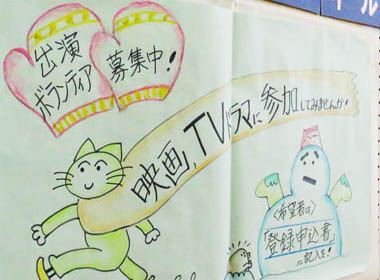 出演
ボランティア
募集中!
映画、TVドラマに参加してみませんか!
〈希望者は〉
「登録申込書」
に記入を!